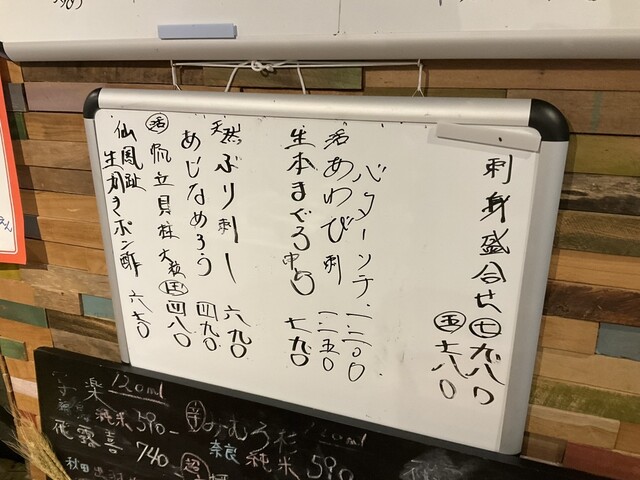 刺身盛合せ ㊆ 九八〇
㊄ 七八〇
バターソテー 一二〇〇
活あわび刺 一一五〇
生本まぐろ中 七九〇
天然ぶり刺し 六九〇
あじなめろう 四九〇
㊋ 帆立貝柱 四八〇
仙鳳趾生がきポン酢 六七〇
楽 120ml
純米 590-
飛露喜 740
みむろ杉 120ml
奈良 純米 590
秋田